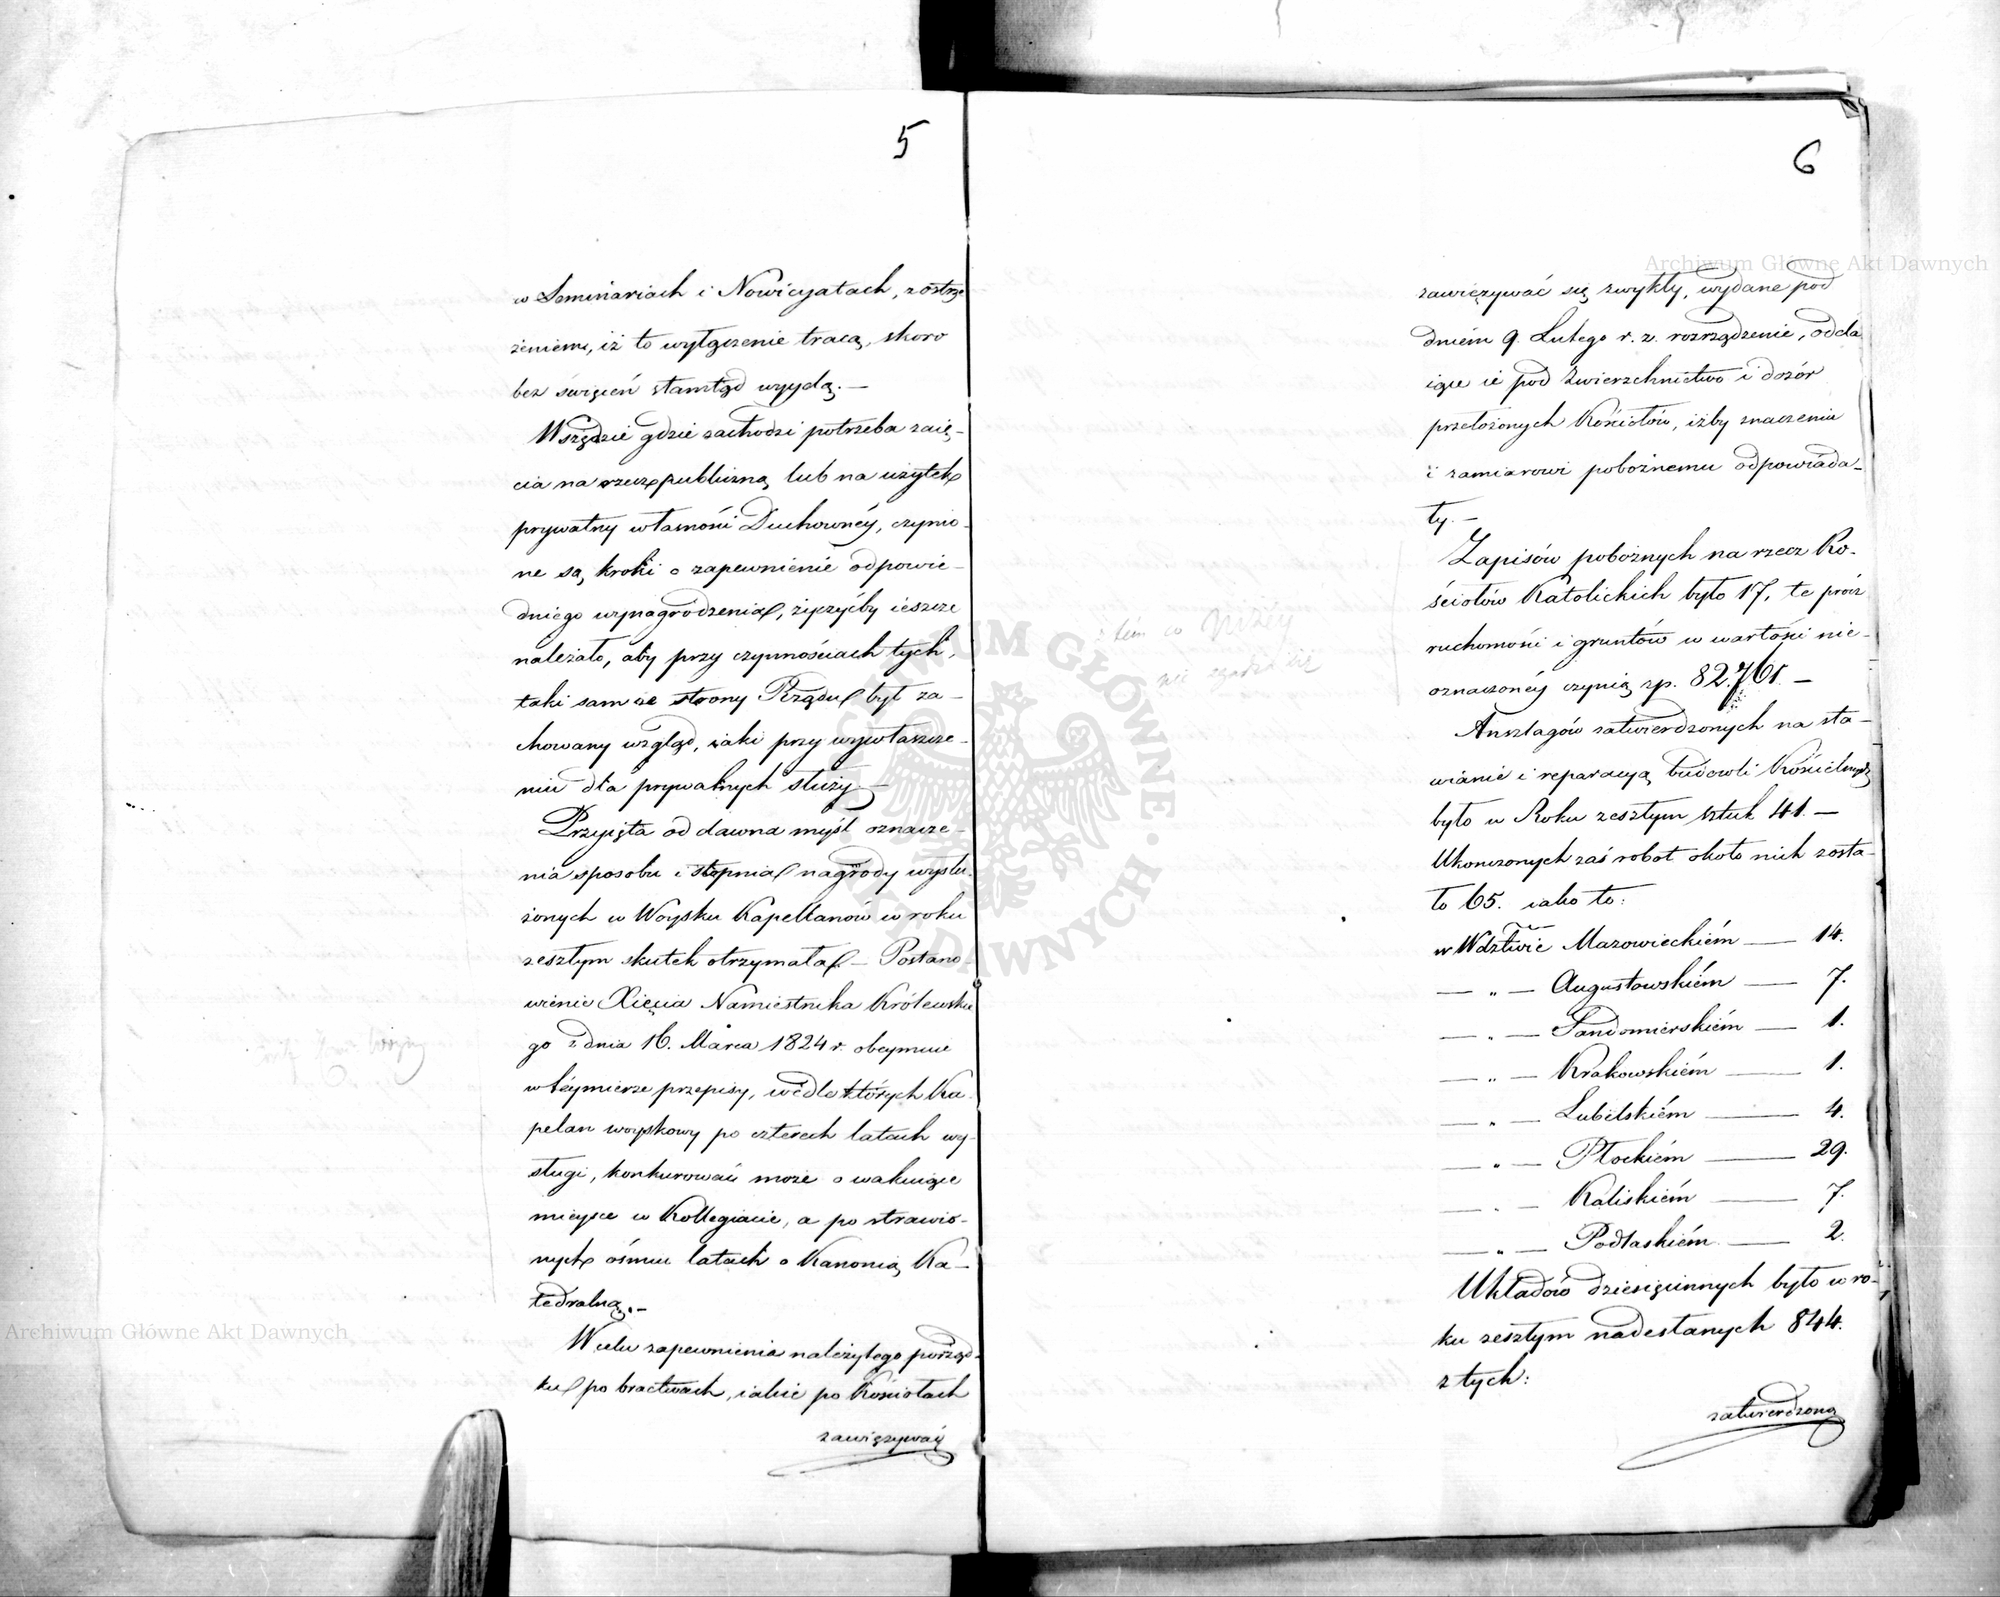 5
w Seminariach i Nowicyatach, zostrze
żeniem, iż to wyłączenie tracą, skoro
bez święceń stamtąd wyydą. —
Wszędzie gdzie zachodzi potrzeba zaię-
cia na rzecz publiczną lub na użytek
prywatny własności Duchownéy, czynio-
ne są kroki o zapewnienie odpowie-
dniego wynagrodzenia, życzyćby ieszcze
należało, aby przy czynnościach tych,
taki sam ze strony Rządu był za-
chowany wzgląd, iaki przy wywłaszcze-
niu dla prywatnych służy —
Przyięta od dawna myśl oznacze-
nia sposobu i stopnia nagrody wysłu-
żonych w Woysku Kapellanów w roku
zeszłym skutek otrzymała. — Postano-
wienie Xięcia Namiestnika Królewskie
go z dnia 16. Marca 1824 r. obeymuie
w téymierze przepisy, wedle których Ka-
pelan woyskowy po czterech latach wy-
sługi, konkurować może o wakuiące
mieysce w Kollegiacie, a po strawio-
nych ośmiu latach o Kanonią Ka-
tedralną. —
W celu zapewnienia należytego porząd-
ku po bractwach, iakie po Kościołach
zawięzywać
6
Archiwum Główne Akt Dawnych
zawięzywać się zwykły, wydane pod
dniem 9. Lutego r. z. rozrządzenie, odda
iąc ie pod Zwierzchnictwo i dozór
przełożonych Kościołów, iżby znaczeniu
i zamiarowi pobożnemu odpowiada-
ły. —
Zapisów pobożnych na rzecz Ko-
ściołów Katolickich było 17, te prócz
ruchomości i gruntów w wartości nie-
oznaczonéy czynią zp. 82,761. —
z tém co Niżéy
nie zgadza się
Anszlagów zatwierdzonych na sta-
wianie i reparacyą budowli Kościelnych
było w Roku zeszłym sztuk 41. —
Ukończonych zaś robot około nich zosta-
ło 65. iako to:
w Wdztwie Mazowieckiém — 14.
— „ — Augustowskiém — 7.
— „ — Sandomierskiém — 1.
— „ — Krakowskiém — 1.
— „ — Lubelskiém — 4.
— „ — Płockiém — 29.
— „ — Kaliskiém — 7.
— „ — Podlaskiém — 2.
Układów dziesięcinnych było w ro-
ku zeszłym nadesłanych 844.
z tych:
zatwierdzono
Archiwum Główne Akt Dawnych
ARCHIWUM GŁÓWNE AKT DAWNYCH